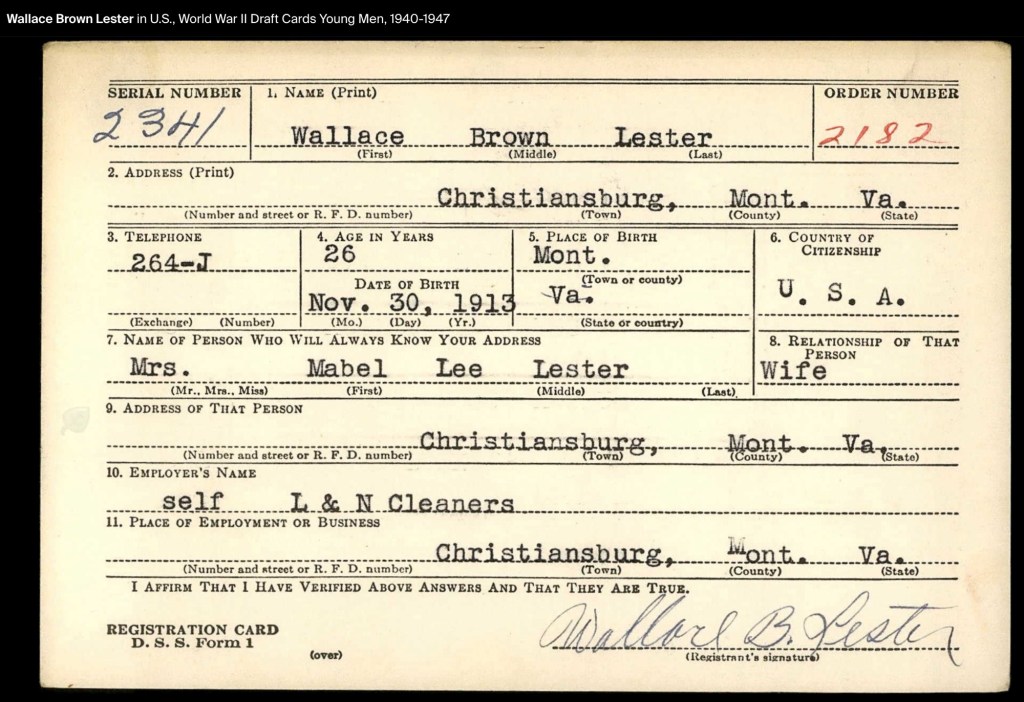 Wallace Brown Lester in U.S., World War II Draft Cards Young Men, 1940-1947
SERIAL NUMBER 1. NAME (Print) ORDER NUMBER
2341 Wallace Brown Lester 2182
(First) (Middle) (Last)
2. ADDRESS (Print)
Christiansburg, Mont. Va.
(Number and street or R. F. D. number) (Town) (County) (State)
3. TELEPHONE 4. AGE IN YEARS 5. PLACE OF BIRTH 6. COUNTRY OF CITIZENSHIP
264-J 26 Mont.
DATE OF BIRTH (Town or county)
Nov. 30, 1913 Va. U. S. A.
(Exchange) (Number) (Mo.) (Day) (Yr.) (State or country)
7. NAME OF PERSON WHO WILL ALWAYS KNOW YOUR ADDRESS 8. RELATIONSHIP OF THAT PERSON
Mrs. Mabel Lee Lester Wife
(Mr., Mrs., Miss) (First) (Middle) (Last)
9. ADDRESS OF THAT PERSON
Christiansburg, Mont. Va.
(Number and street or R. F. D. number) (Town) (County) (State)
10. EMPLOYER'S NAME
self L & N Cleaners
11. PLACE OF EMPLOYMENT OR BUSINESS
Christiansburg, Mont. Va.
(Number and street or R. F. D. number) (Town) (County) (State)
I AFFIRM THAT I HAVE VERIFIED ABOVE ANSWERS AND THAT THEY ARE TRUE.
REGISTRATION CARD Wallace B. Lester
D. S. S. Form 1 (over) (Registrant's signature)